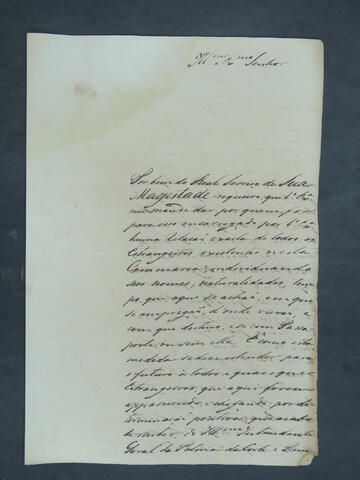 Ill.mo e Ex.mo Senhor
Por bem do Real Serviço de Sua
Magestade requeiro, que V. Ex.a
me mande dar por quem for
para isso encarregado por V. Ex.a
huma relação exacta de todos os
Estrangeiros existentes nesta
Commarca, individuando
seos nomes, naturalidades, tem-
po, que aqui se achão, em que
se empregão, d'onde vierão, e
com que destino, e se com Passa
porte, ou sem elle. E como esta
medida se deve estender para
o futuro à todos, e quaesquer
Estrangeiros, que aqui forem
apparecendo, e chegando, por de-
terminação positiva, que acabo
de receber, do Ill.mo Intendente
Geral da Policia da Corte e